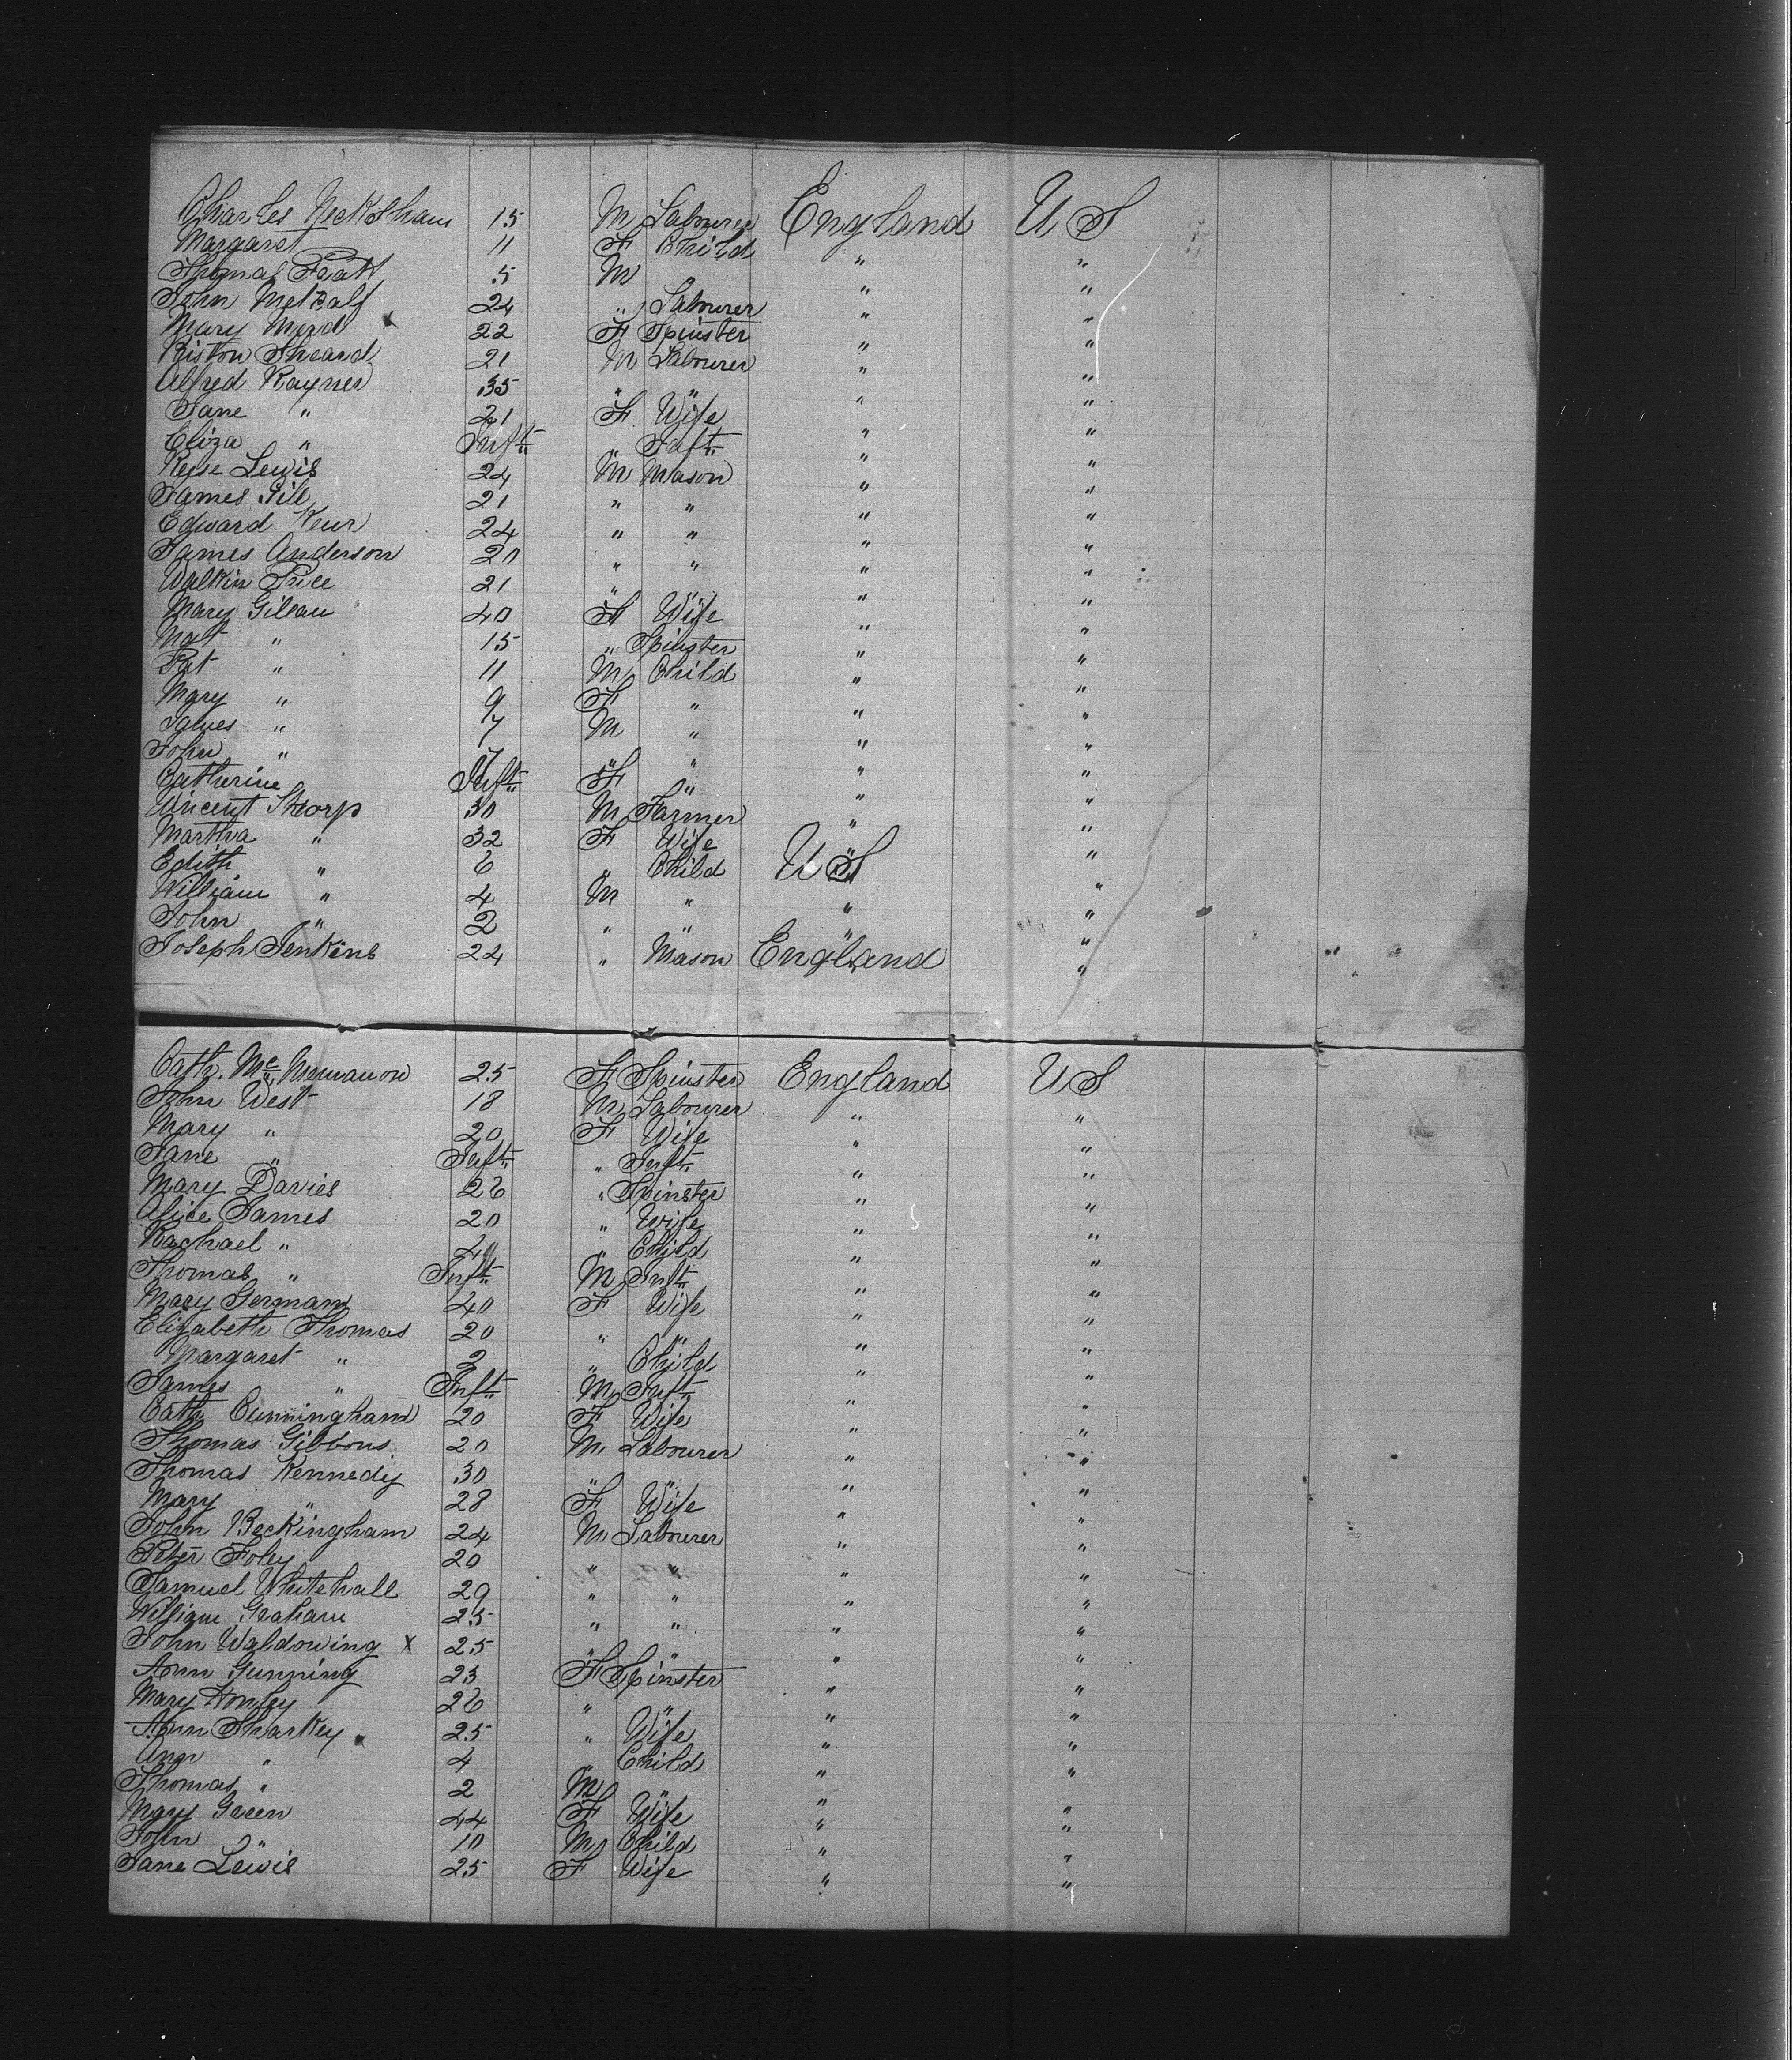 Charles Neckolham 15 M Labourer England U S
Margaret 11 F Child " "
Thomas Pratt 5 M " "
John Metcalf 24 " Labourer " "
Mary Mord x 22 F Spinster " "
Riston Sheard 21 M Labourer " "
Alfred Rayner 35 " " " "
Jane " 21 F Wife " "
Eliza " Inft " Inft " "
Lewis 24 M Mason " "
James Gill 21 " " " "
Edward Keur 24 " " " "
James Anderson 20 " " " "
Watkin Price 21 " " " "
Mary Gilean 40 F Wife " "
Mgt " 15 " Spinster " "
Pat " 11 M Child " "
Mary " 9 F " " "
James " 7 M " " "
John " " " " "
Catherine Inft F " " "
Vincent Thorp 30 M Farmer " "
Martha " 32 F Wife " "
Edith " 6 " Child U S "
William " 4 M " " "
John " 2 " " " "
Joseph Jenkins 24 " Mason England "
Cath. Mc 25 F Spinster England U S
John West 18 M Labourer " "
Mary " 20 F Wife " "
Jane " Inft " Inft " "
Mary Davies 26 " Spinster " "
Alice James 20 " Wife " "
Rachael " " Child " "
Thomas " Inft M Inft " "
Mary German 40 F Wife " "
Elizabeth Thomas 20 " " " "
Margaret " 2 " Child " "
James " Inft M Inft " "
Cath Cunningham 20 F Wife " "
Thomas Gibbons 20 M Labourer " "
Thomas Kennedy 30 " " " "
Mary " 28 F Wife " "
John Beckingham 24 M Labourer " "
Peter Foley 20 " " " "
Samuel Whitehall 29 " " " "
William Graham 25 " " " "
John Waldowing x 25 " " " "
Ann Gunning 23 F Spinster " "
Mary 26 " " " "
Ann Sharkey 25 " Wife " "
Ann " 4 " Child " "
Thomas " 2 M " " "
Mary Green 44 F Wife " "
John " 10 M Child " "
Jane Lewis 25 F Wife " "